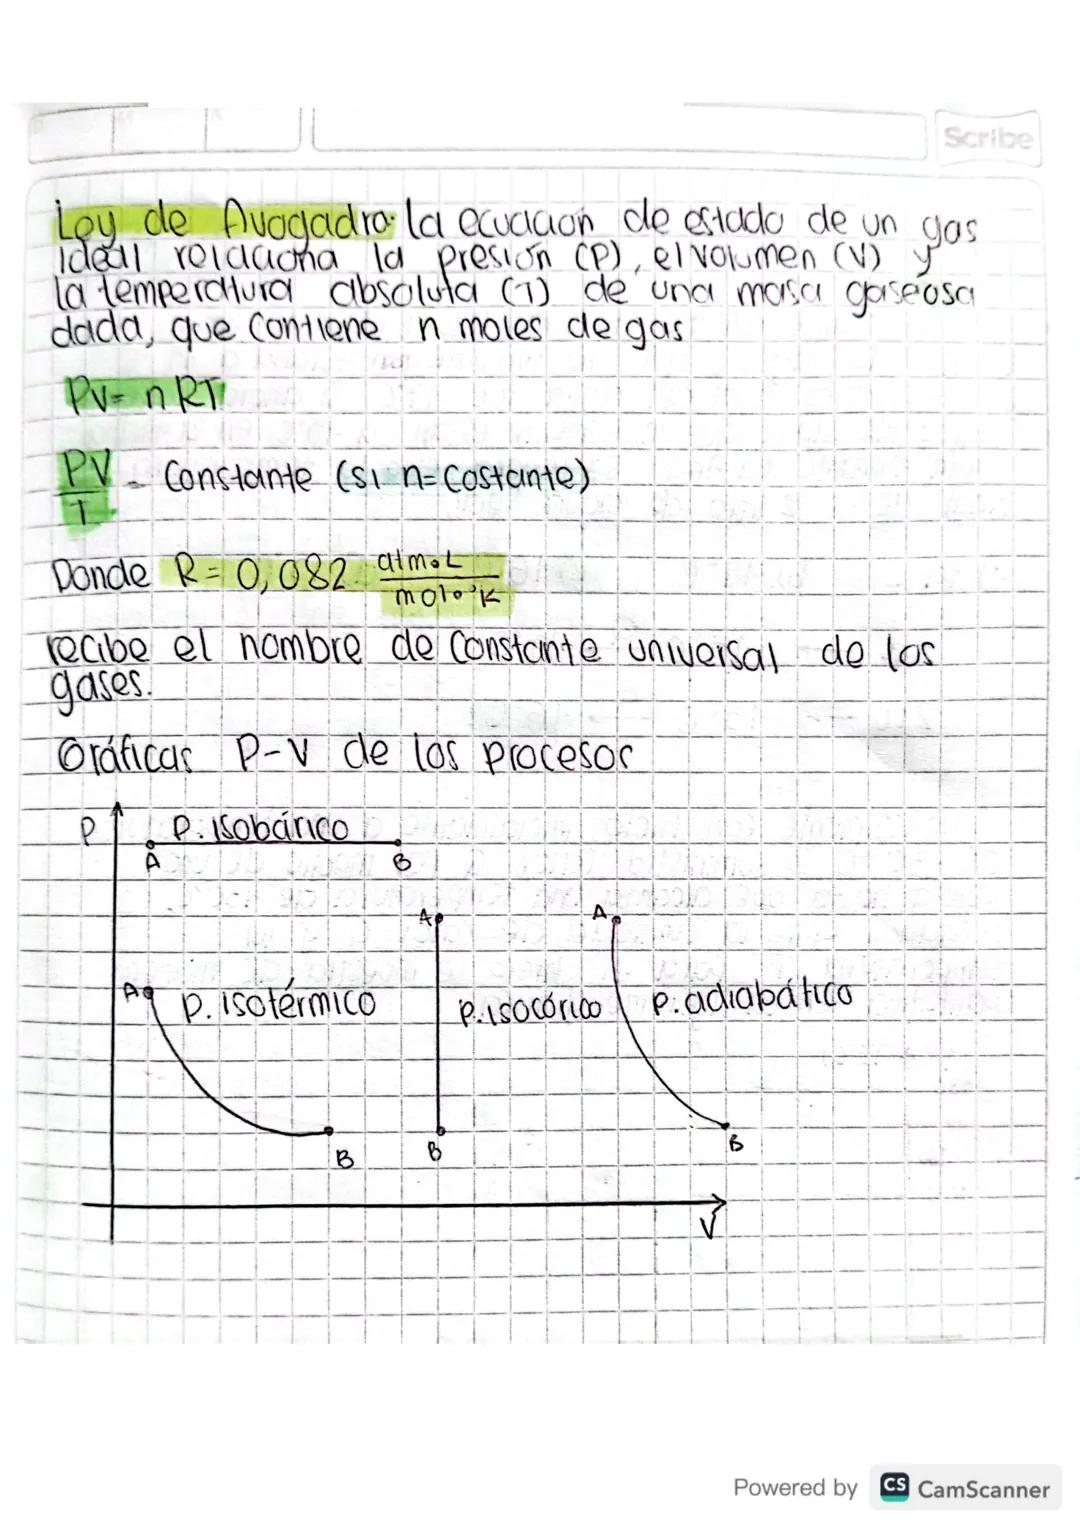 Scribe
Ley de Avogadro: la ecuación de estado de un gas
ideal relaciona la presión (P), el volumen (V) y
la temperatura absoluta (T) de una masa gaseosa
dada, que contiene n moles de gas
PV= nRT
PV
T
= Constante (si n=Costante)
Donde R= 0,082 atm·L
mol·°K
recibe el nombre de Constante universal de los
gases.
Gráficas P-V de los procesos
P
P. Isobárico
A
B
A
A
A
P. isotérmico
P. isocórico
P. adiabático
B
B
B
V
Powered by CS CamScanner